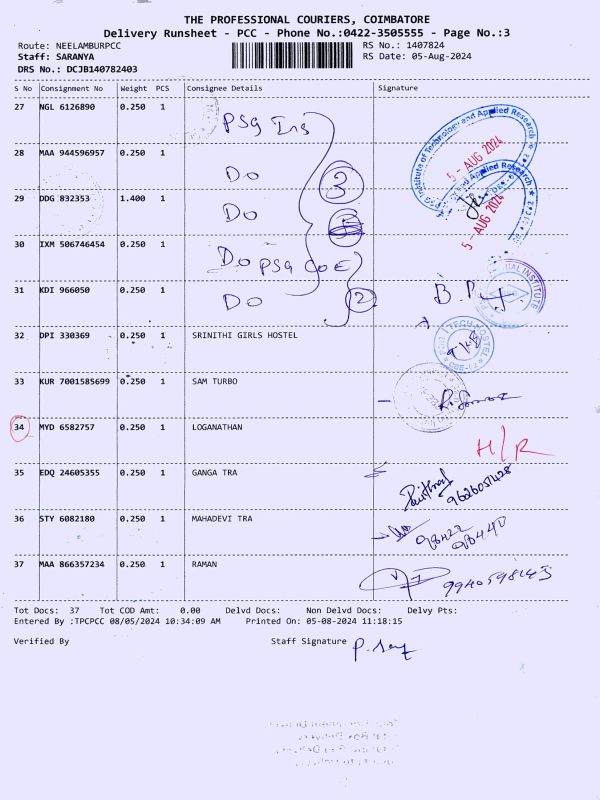 THE PROFESSIONAL COURIERS, COIMBATORE
Delivery Runsheet - PCC - Phone No.:0422-3505555 - Page No.:3
Route: NEELAMBURPCC RS No.: 1407824
Staff: SARANYA RS Date: 05-Aug-2024
DRS No.: DCJB140782403
S No Consignment No Weight PCS Consignee Details Signature
27 NGL 6126890 0.250 1 PSG Ins
28 MAA 944596957 0.250 1 Do 3
29 DDG 832353 1.400 1 Do
30 IXM 506746454 0.250 1 Do PSG COE
31 KDI 966050 0.250 1 Do 2
Institute of Technology and Applied Research
5 - AUG 2024
5 - AUG 2024
32 DPI 330369 0.250 1 SRINITHI GIRLS HOSTEL
33 KUR 7001585699 0.250 1 SAM TURBO
34 MYD 6582757 0.250 1 LOGANATHAN H/R
35 EDQ 24605355 0.250 1 GANGA TRA
36 STY 6082180 0.250 1 MAHADEVI TRA 98422 98440
37 MAA 866357234 0.250 1 RAMAN
Tot Docs: 37 Tot COD Amt: 0.00 Delvd Docs: Non Delvd Docs: Delvy Pts:
Entered By :TPCPCC 08/05/2024 10:34:09 AM Printed On: 05-08-2024 11:18:15
Verified By Staff Signature